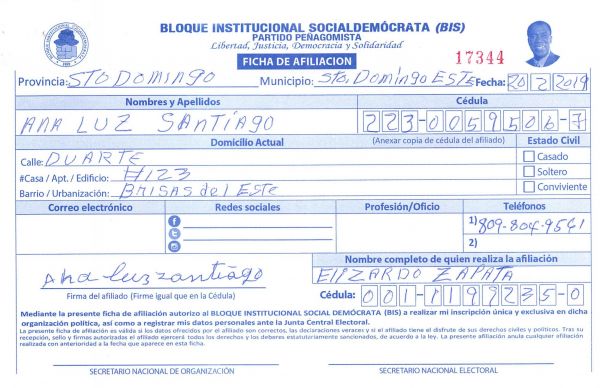 BLOQUE INSTITUCIONAL SOCIALDEMÓCRATA (BIS)
PARTIDO PEÑAGOMISTA
Libertad, Justicia, Democracia y Solidaridad
FICHA DE AFILIACION
17344
Provincia: STO DOMINGO Municipio: Sto. Domingo ESTE Fecha: 20/2/2019
Nombres y Apellidos Cédula
ANA LUZ SANTIAGO 223-0059506-7
Domicilio Actual (Anexar copia de cédula del afiliado) Estado Civil
Calle: DUARTE Casado
#Casa / Apt. / Edificio: #123 Soltero
Barrio / Urbanización: BRISAS del ESTE Conviviente
Correo electrónico Redes sociales Profesión/Oficio Teléfonos
1) 809-804-9541
2)
Nombre completo de quien realiza la afiliación
Ana luz santiago ELIZARDO ZAPATA
Firma del afiliado (Firme igual que en la Cédula) Cédula: 001-1199235-0
Mediante la presente ficha de afiliación autorizo al BLOQUE INSTITUCIONAL SOCIAL DEMÓCRATA (BIS) a realizar mi inscripción única y exclusiva en dicha
organización política, así como a registrar mis datos personales ante la Junta Central Electoral.
La presente ficha de afiliación es válida si los datos ofrecidos por el afiliado son correctos, las declaraciones veraces y si el afiliado tiene el disfrute de sus derechos civiles y políticos. Tras su
recepción, sello y firmas autorizadas el afiliado ejercerá todos los derechos y los deberes estatutariamente sancionados, de acuerdo a la ley. La presente afiliación anula cualquier afiliación
realizada con anterioridad a la fecha que aparece en esta ficha.
SECRETARIO NACIONAL DE ORGANIZACIÓN SECRETARIO NACIONAL ELECTORAL